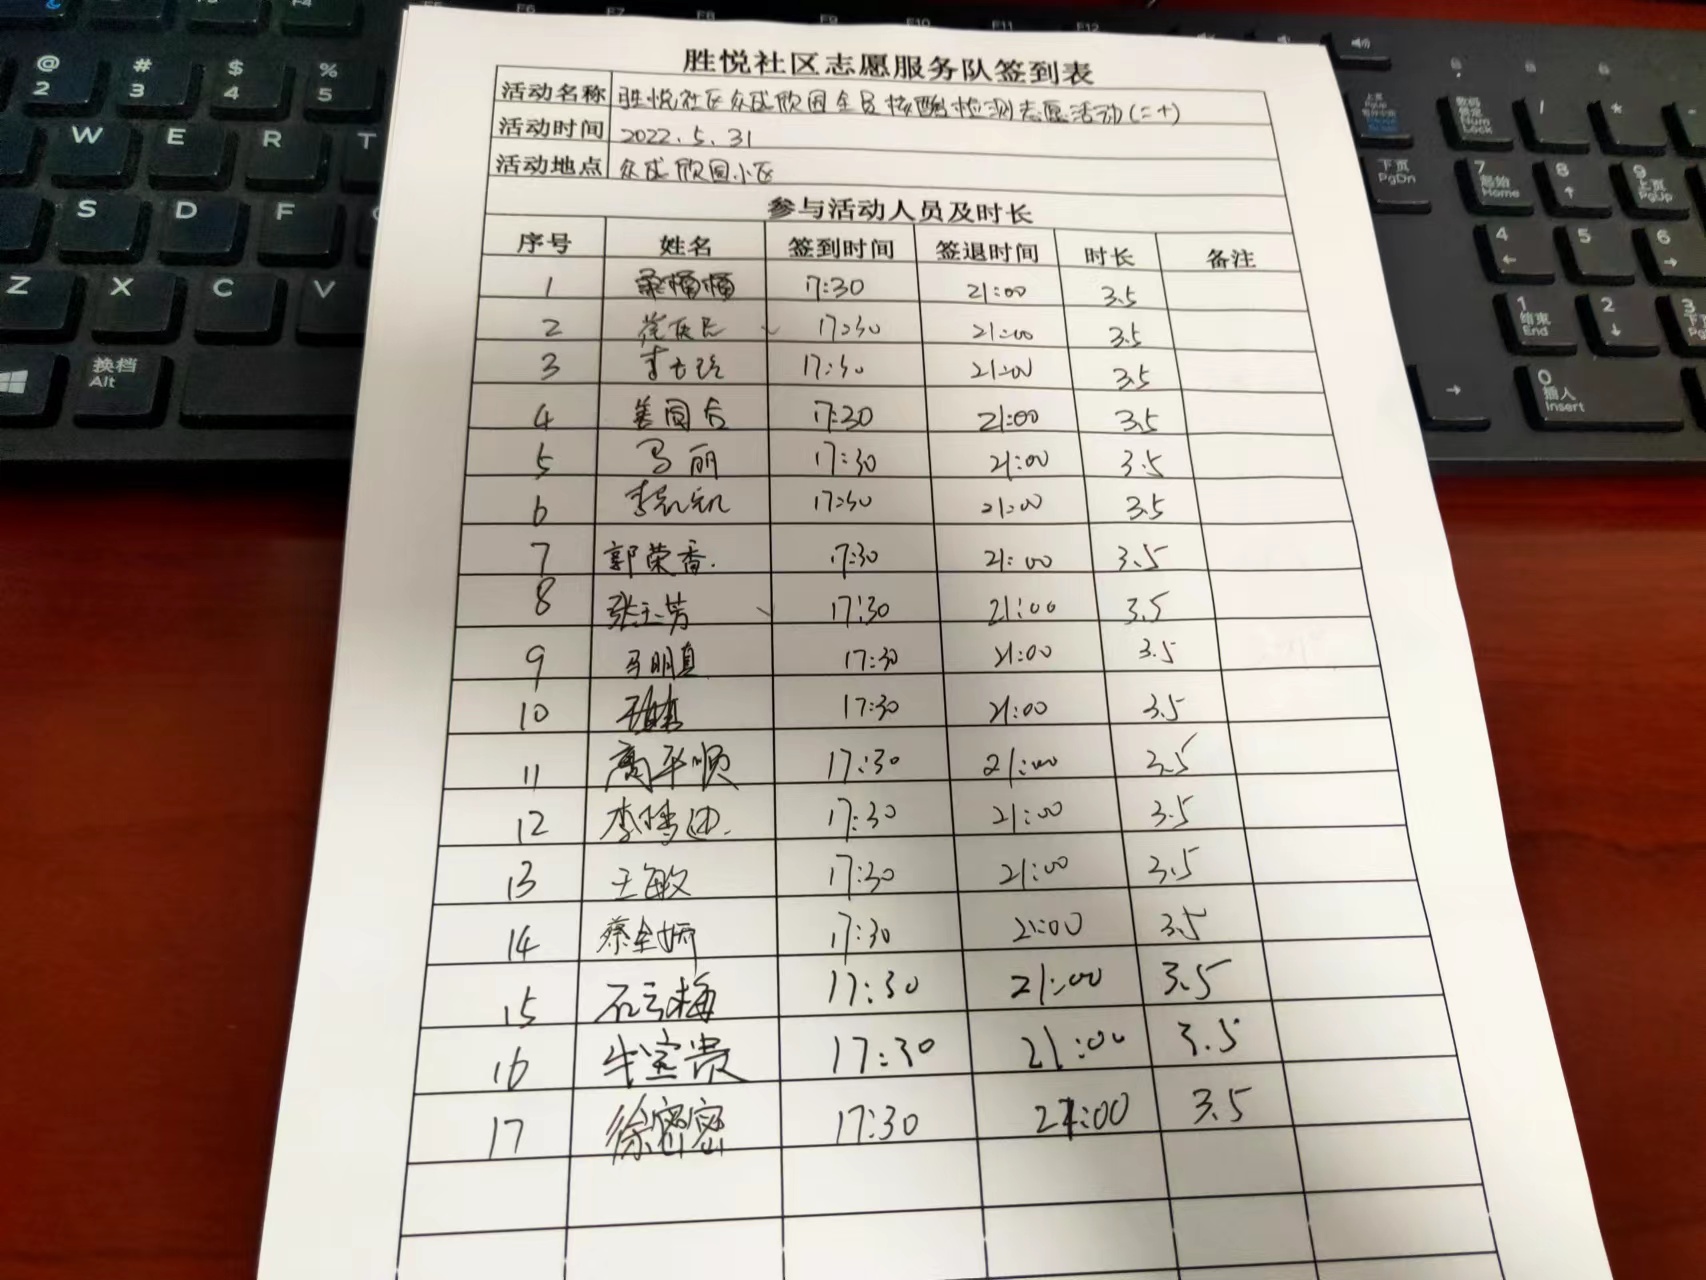 胜悦社区志愿服务队签到表
活动名称 胜悦社区众成欣园全员核酸检测志愿活动(二十)
活动时间 2022.5.31
活动地点 众成欣园小区
参与活动人员及时长
序号 姓名 签到时间 签退时间 时长 备注
1 17:30 21:00 3.5
2 17:30 21:00 3.5
3 17:30 21:00 3.5
4 17:30 21:00 3.5
5 马丽 17:30 21:00 3.5
6 17:30 21:00 3.5
7 郭荣香 17:30 21:00 3.5
8 张玉芳 17:30 21:00 3.5
9 马明真 17:30 21:00 3.5
10 17:30 21:00 3.5
11 高平顺 17:30 21:00 3.5
12 17:30 21:00 3.5
13 王敏 17:30 21:00 3.5
14 蔡金娇 17:30 21:00 3.5
15 石云梅 17:30 21:00 3.5
16 牛宝贵 17:30 21:00 3.5
17 徐密密 17:30 21:00 3.5
@ 2
# 3
$ 4
% 5
W E R T
S D F
Z X C V
换档 Alt
数码锁定 Num Lock
下页 PgDn
7 起始 Home
8
9 上页 PgUp
4 5 6
1 结束 End
2
3
0 插入 Insert